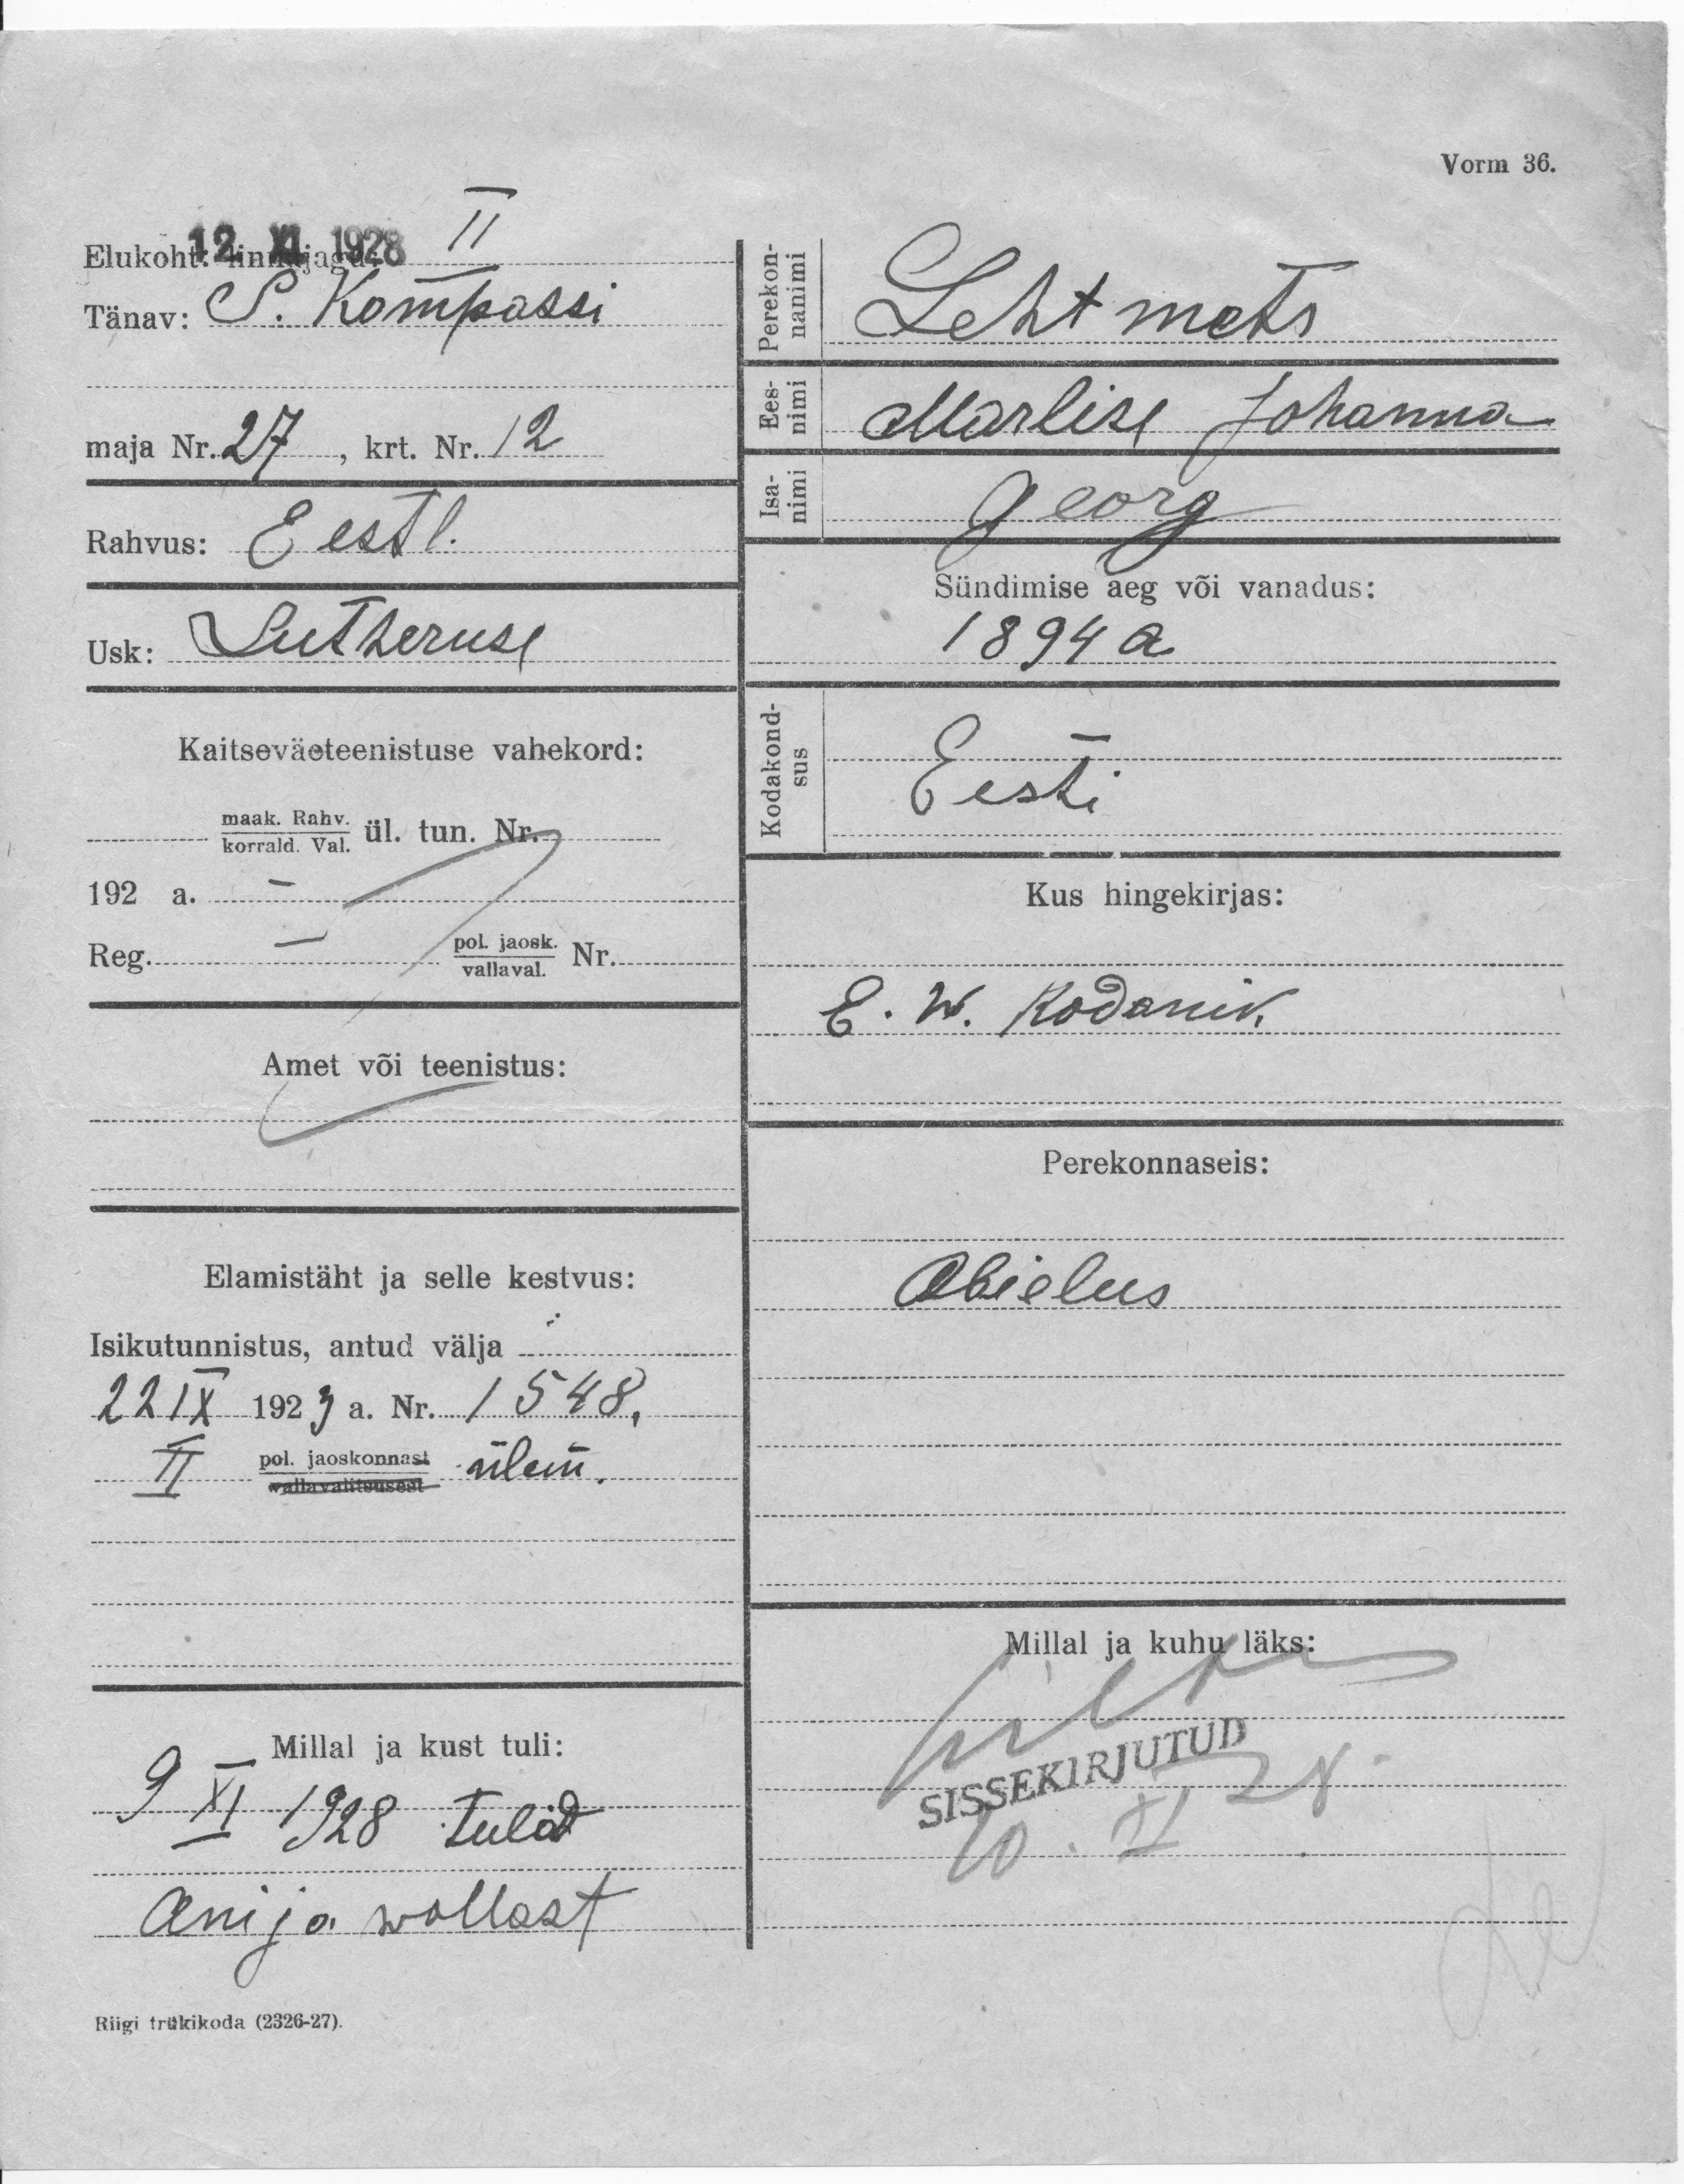 Vorm 36.
Elukoht: linnajagu: II
12. XI. 1928
Tänav: S. Kompassi
maja Nr. 27, krt. Nr. 12
Rahvus: Eestl.
Usk: Lutheruse
Kaitseväeteenistuse vahekord:
maak. Rahv.
korrald. Val. ül. tun. Nr.
192 a. —
Reg. — pol. jaosk.
vallaval. Nr.
Amet või teenistus:
Elamistäht ja selle kestvus:
Isikutunnistus, antud välja
22 IX 1923 a. Nr. 1548.
II pol. jaoskonnast
vallavalitsusest ülem.
Millal ja kust tuli:
9 XI 1928 tulid
Anija wallast
Riigi trükikoda (2326-27).
Perekon-
nanimi Lehtmets
Ees-
nimi Marlise Johanna
Isa-
nimi Georg
Sündimise aeg või vanadus:
1894 a
Kodakond-
sus Eesti
Kus hingekirjas:
E. W. Kodanik.
Perekonnaseis:
Abielus
Millal ja kuhu läks:
SISSEKIRJUTUD
10. XI 28.